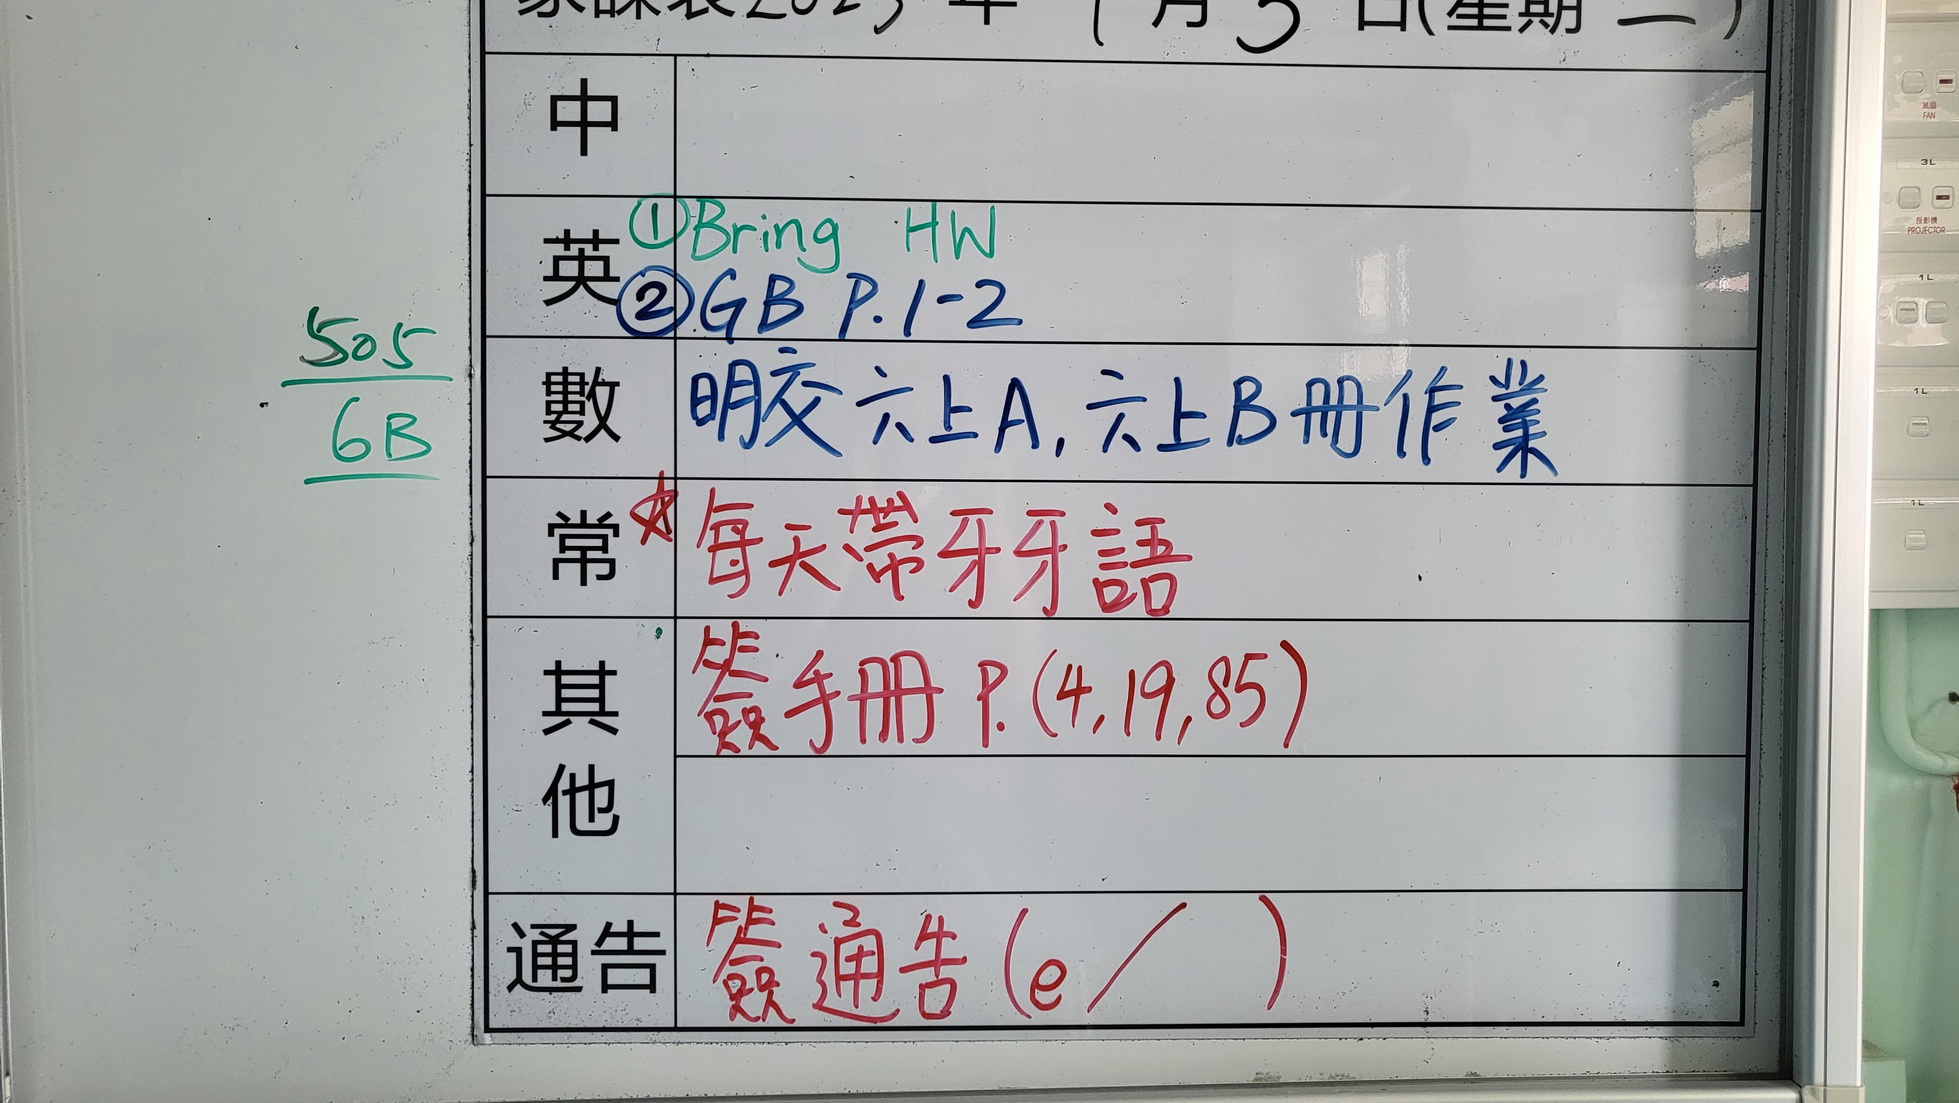 家課表2025年9月3日(星期
中
英 ①Bring HW
②GB P.1-2
505
6B
數 明交六上A,六上B冊作業
常 ☆每天帶牙牙語
其他 簽手冊 P.(4,19,85)
通告 簽通告(e/ )
風扇
FAN
3L
投影機
PROJECTOR
1L
1L
1L